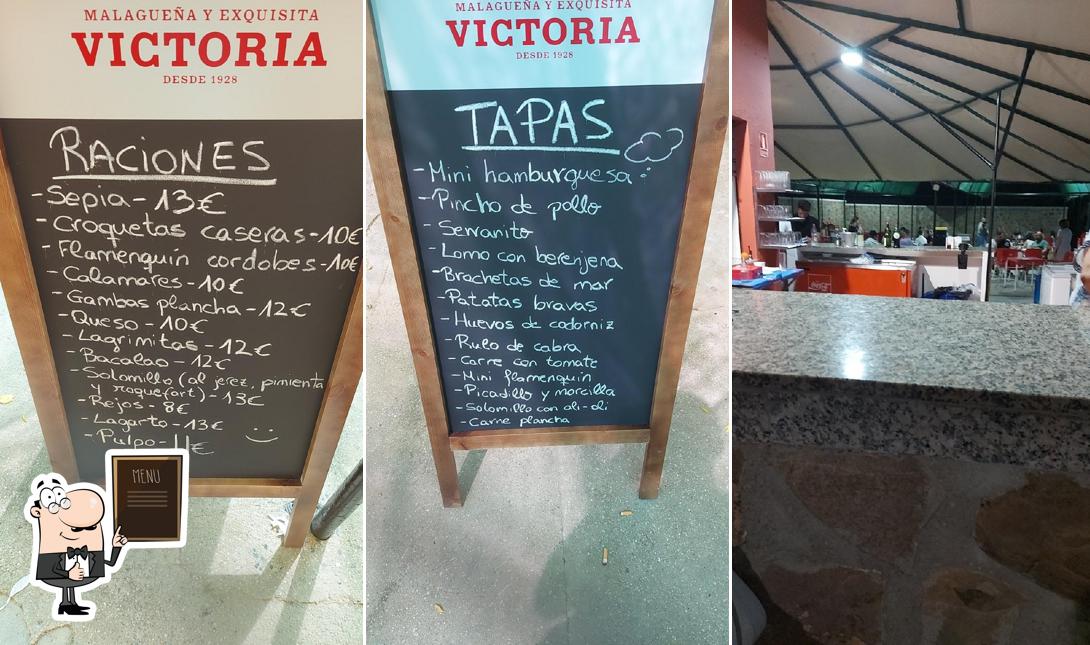 MALAGUEÑA Y EXQUISITA
VICTORIA
DESDE 1928
RACIONES
-Sepia-13€
-Croquetas caseras-10€
-Flamenquin cordobes-10€
-Calamares-10€
-Gambas plancha-12€
-Queso-10€
-Lagrimitas-12€
-Bacalao-12€
-Solomillo (al jerez, pimienta
y roquefort)-13€
-Rejos-8€
-Lagarto-13€
-Pulpo-11€
MENU
MALAGUEÑA Y EXQUISITA
VICTORIA
DESDE 1928
TAPAS
-Mini hamburguesa
-Pincho de pollo
-Serranito
-Lomo con berenjena
-Brochetas de mar
-Patatas bravas
-Huevos de codorniz
-Rulo de cabra
-Carne con tomate
-Mini flamenquin
-Picadillo y morcilla
-Solomillo con ali-oli
-Carne plancha